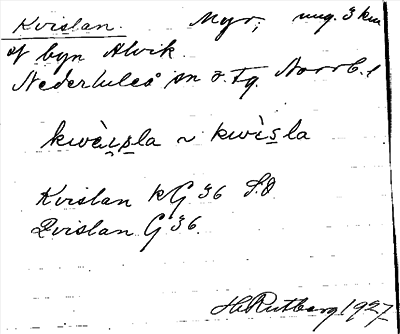 Kvislan. Myr, ung. 3 km
af byn Alvik
Nederluleå sn o. tg. Norrb. l
kwὰi̯s̱la ~ kwìs̱la
Kvislan kG 36 S.O
Qvislan G 36.
H. Rutberg 1927